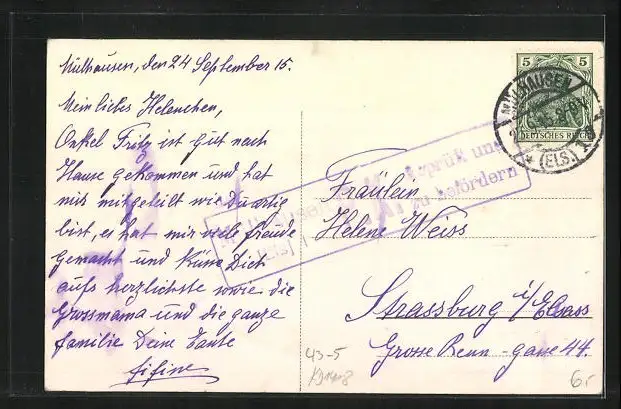 Mülhausen, den 24 September 15.
Mein liebes Helenchen,
Onkel Fritz ist gut nach
Hause gekommen und hat
mir mitgeteilt wie Du artig
bist, es hat mir viele Freude
gemacht und küsse Dich
aufs herzlichste sowie die
Grossmama und die ganze
familie Deine Tante
fifine
5 5
MÜLHAUSEN
DEUTSCHES REICH
(ELS.)
geprüft und
zu befördern
Fräulein
Helene Weiss
Strassburg i/Elsass
Grosse Renn-gasse 44.
43-5
6.-